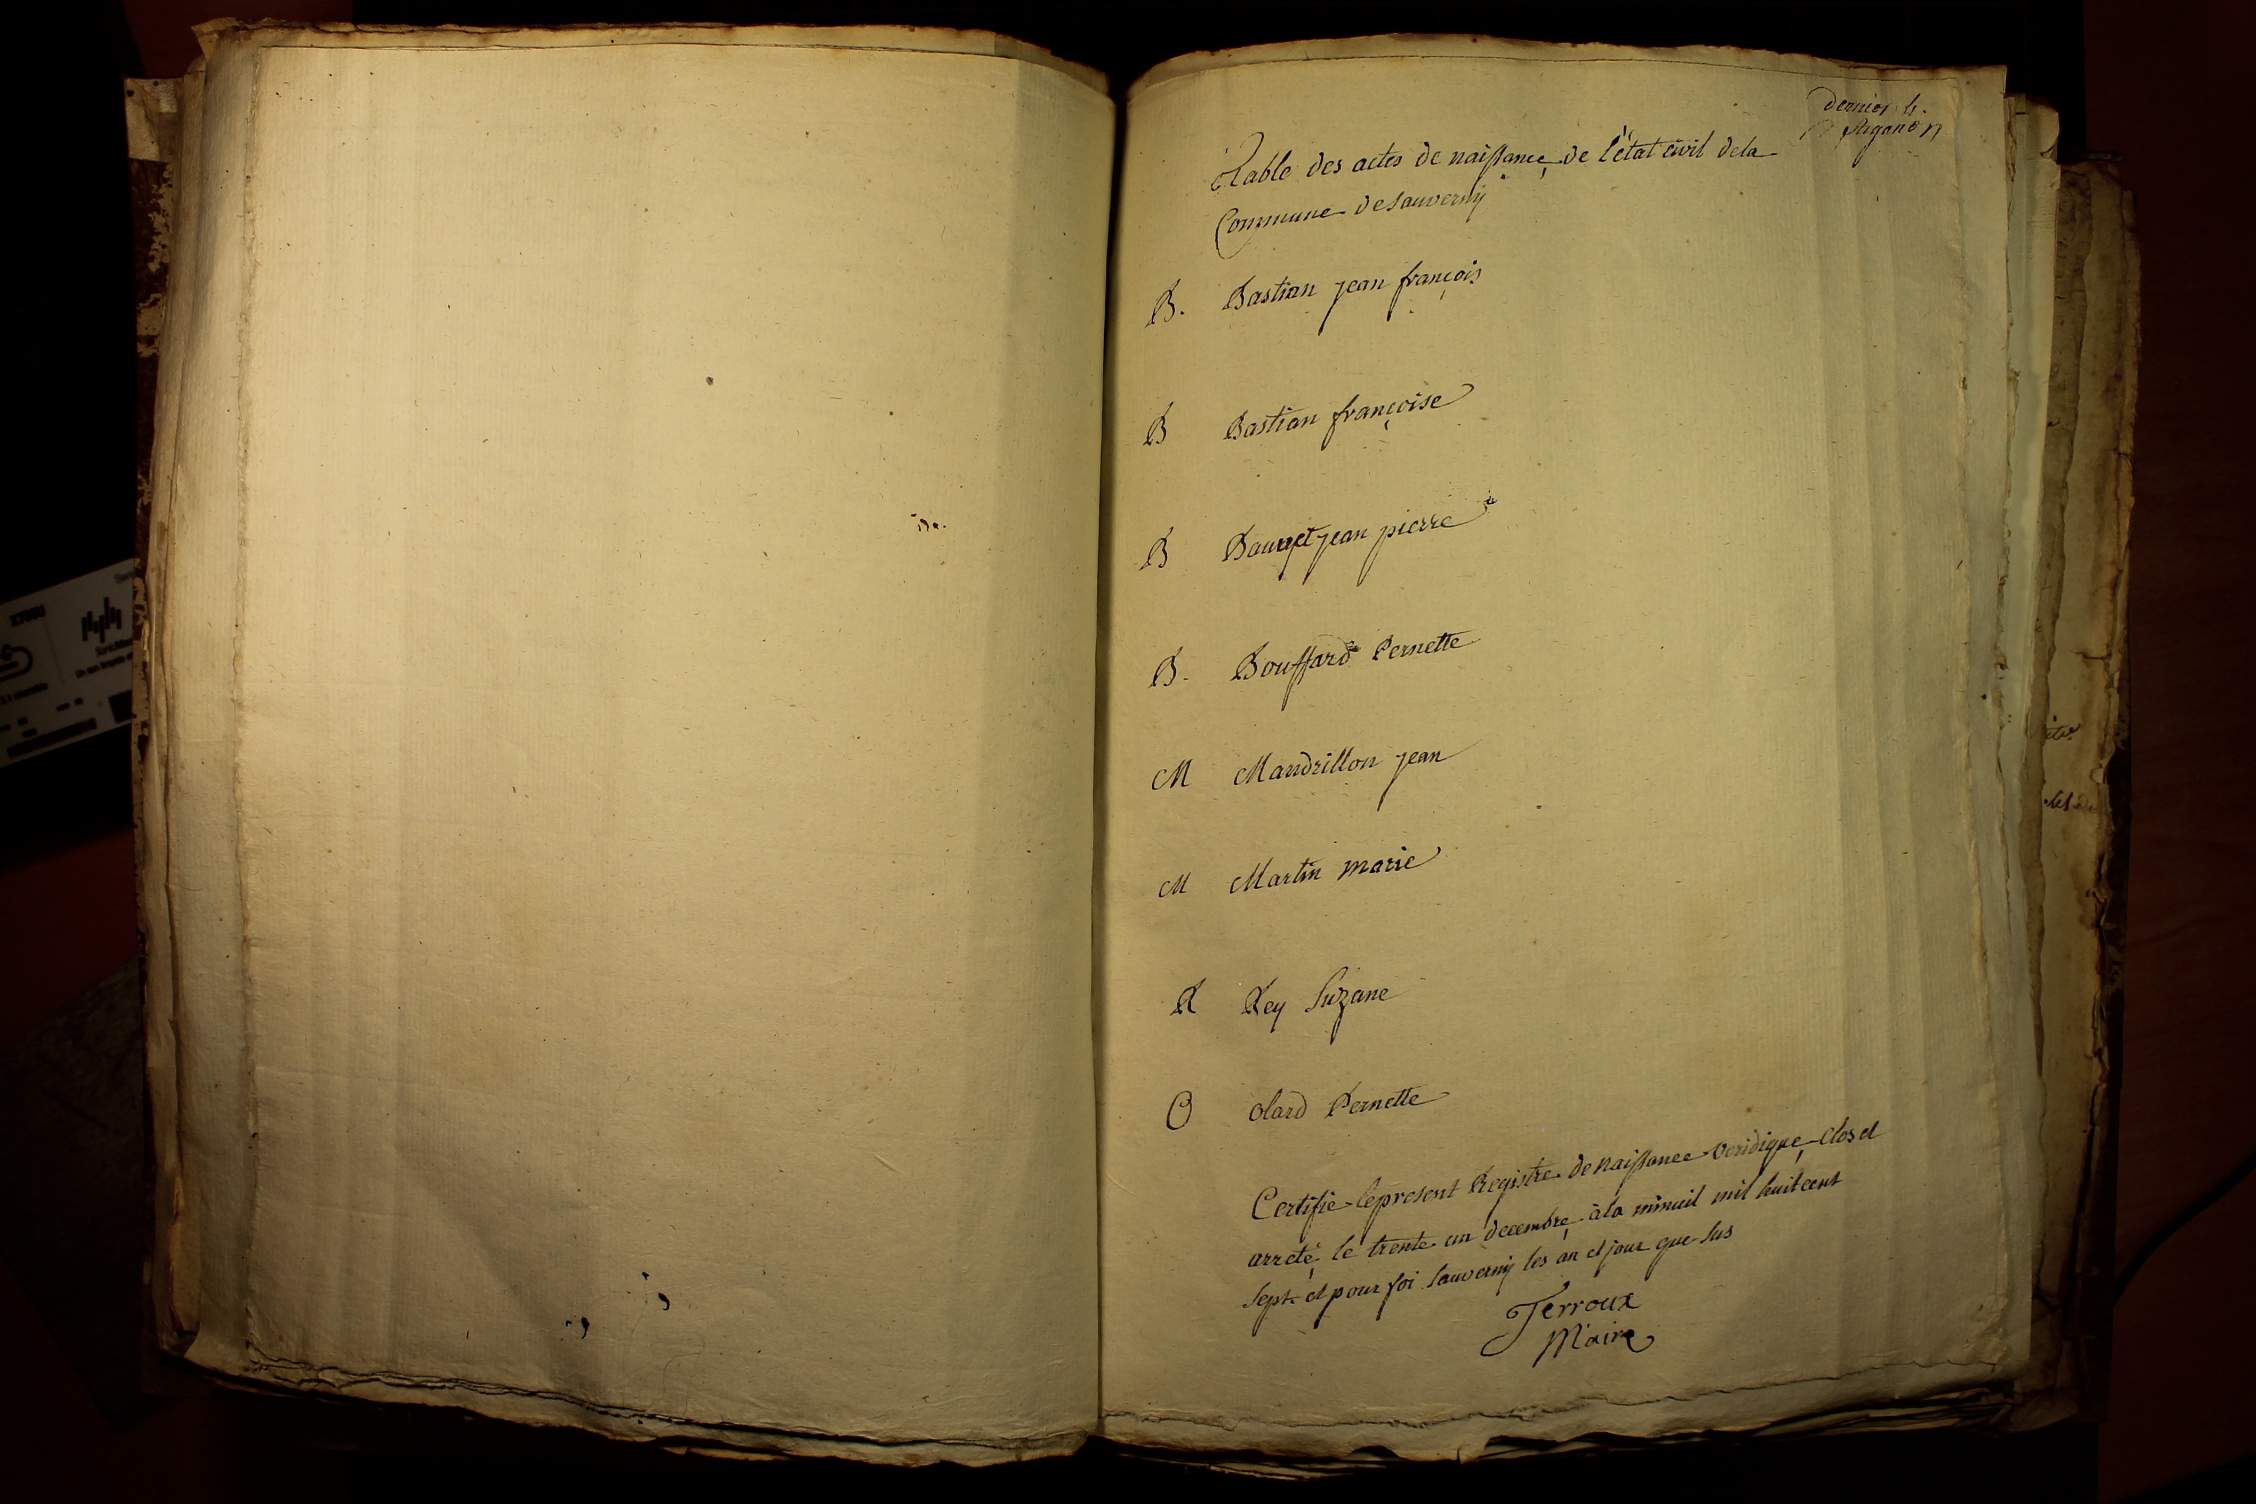 dernier f.
Rigaud
Table des actes de naissance de l'état civil dela
Commune de Sauverny
B. Bastian jean françois
B Bastian françoise
B jean pierre
B. Bouffard Pernette
M Mandrillon jean
M Martin marie
R Rey Suzane
O olard Pernette
Certifie le present Registre de naissance veridique Clos et
arreté le trente un decembre à la minuit mil huit cent
sept et pour foi Sauverny les an et jour que Sus
Terroux
Maire